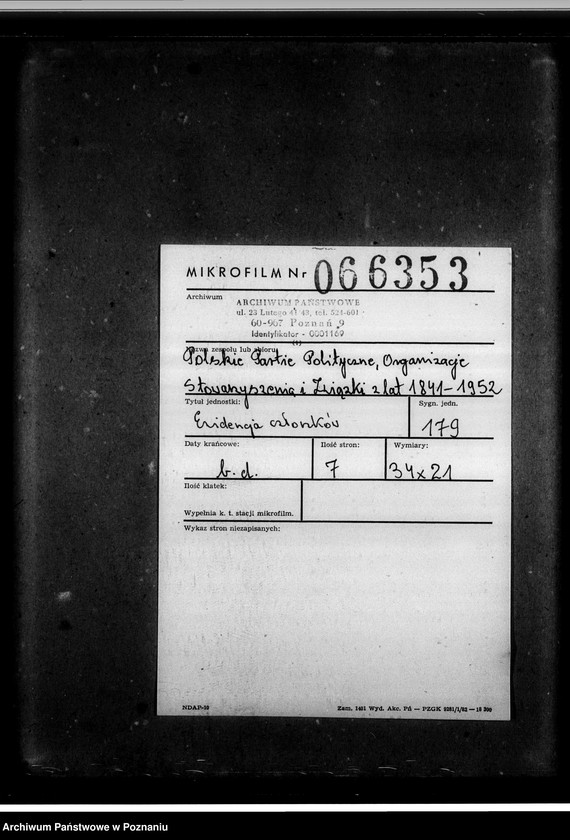 MIKROFILM Nr 066353
Archiwum
ARCHIWUM PAŃSTWOWE
ul. 23 Lutego 41/43, tel. 524-601
60-967 Poznań 9
Identyfikator - 0001169
Nazwa zespołu lub zbioru
Polskie Partie Polityczne, Organizacje
Stowarzyszenia i Związki z lat 1841-1952
Tytuł jednostki:
Sygn. jedn.
Ewidencja członków
179
Daty krańcowe:
Ilość stron:
Wymiary:
b.d.
7
34x21
Ilość klatek:
Wypełnia k. t. stacji mikrofilm.
Wykaz stron niezapisanych:
NDAP-10
Zam. 1461 Wyd. Akc. Pń — PZGK
Archiwum Państwowe w Poznaniu